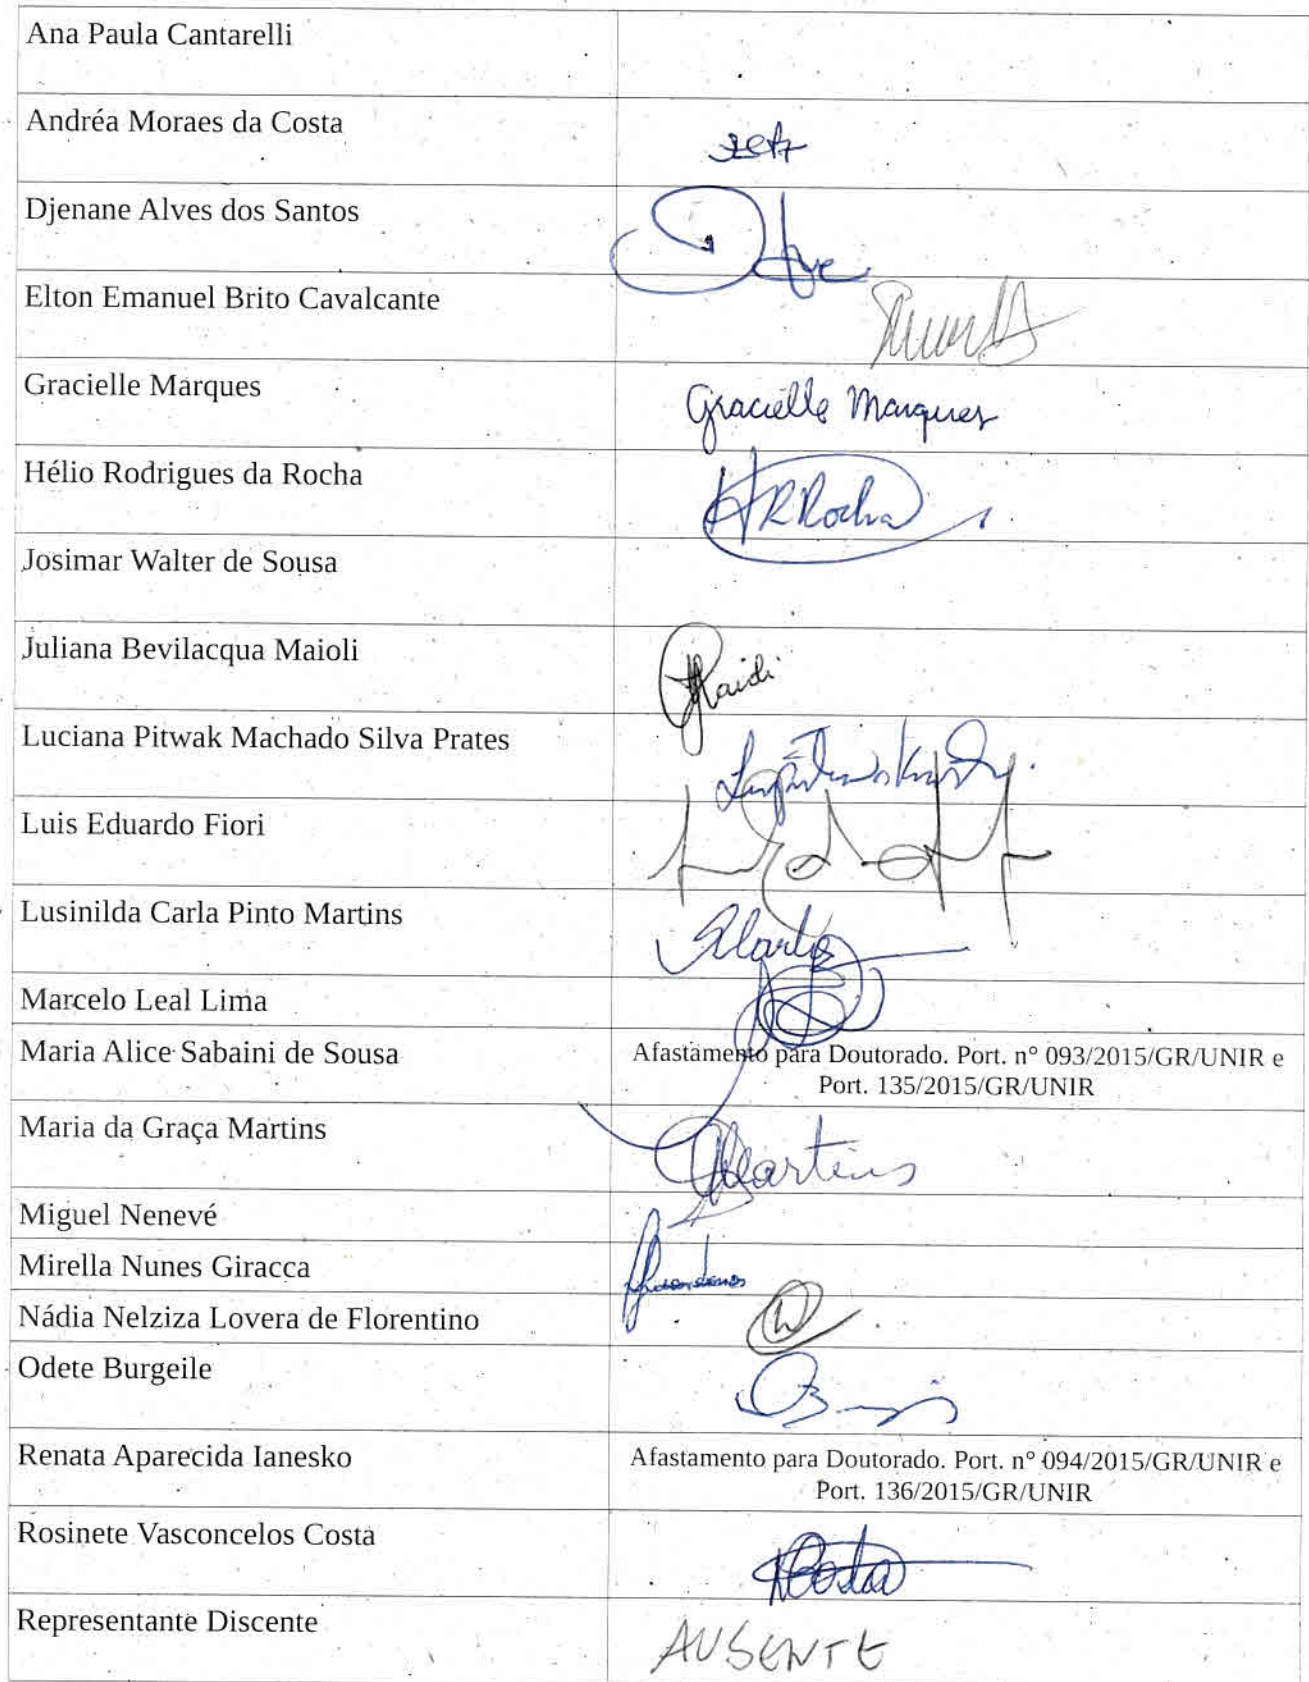 Ana Paula Cantarelli
Andréa Moraes da Costa
Djenane Alves dos Santos
Elton Emanuel Brito Cavalcante
Gracielle Marques
Gracielle Marques
Hélio Rodrigues da Rocha
HRRocha
Josimar Walter de Sousa
Juliana Bevilacqua Maioli
Luciana Pitwak Machado Silva Prates
Luis Eduardo Fiori
Lusinilda Carla Pinto Martins
Marcelo Leal Lima
Maria Alice Sabaini de Sousa
Afastamento para Doutorado. Port. nº 093/2015/GR/UNIR e
Port. 135/2015/GR/UNIR
Maria da Graça Martins
Martins
Miguel Nenevé
Mirella Nunes Giracca
Nádia Nelziza Lovera de Florentino
Odete Burgeile
Renata Aparecida Ianesko
Afastamento para Doutorado. Port. nº 094/2015/GR/UNIR e
Port. 136/2015/GR/UNIR
Rosinete Vasconcelos Costa
RCosta
Representante Discente
AUSENTE